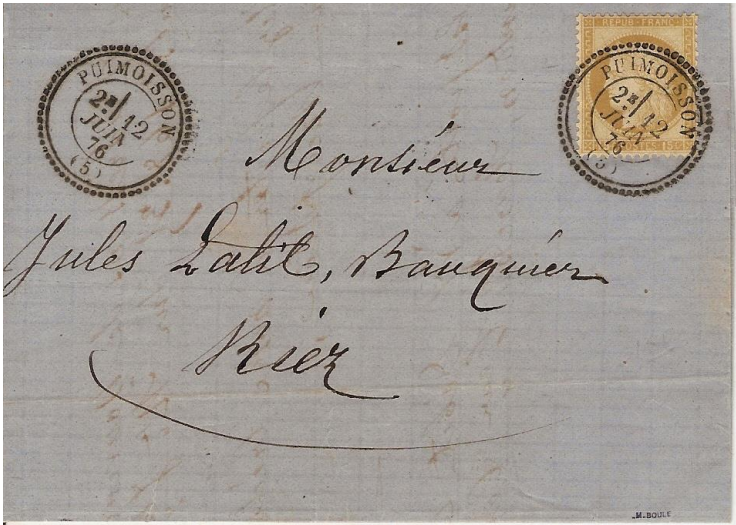 PUIMOISSON
2E/ 12
JUIN
76
(5)
REPUB · FRANC
15c POSTES 15c
PUIMOISSON
2E/ 12
JUIN
76
(5)
Monsieur
Jules Latil, Banquier
Riez
M. BOULE